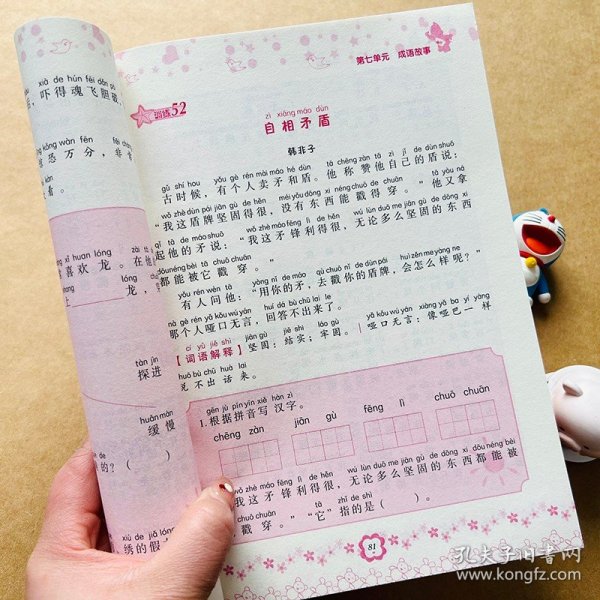 第七单元 成语故事
训练52
zì xiāng máo dùn
自相矛盾
韩非子
gǔ shí hou yǒu gè rén mài máo hé dùn tā chēng zàn tā zì jǐ de dùn shuō
古时候，有个人卖矛和盾。他称赞他自己的盾说：
wǒ zhè dùn pái jiān gù de hěn méi yǒu dōng xi néng chuō de chuān tā yòu ná
“我这盾牌坚固得很，没有东西能戳得穿。”他又拿
qǐ tā de máo shuō wǒ zhè máo fēng lì de hěn wú lùn duō me jiān gù de dōng xi
起他的矛说：“我这矛锋利得很，无论多么坚固的东西
dōu néng bèi tā chuō chuān
都能被它戳穿。”
yǒu rén wèn tā yòng nǐ de máo qù chuō nǐ de dùn pái huì zěn me yàng ne
有人问他：“用你的矛，去戳你的盾牌，会怎么样呢？”
nà gè rén yǎ kǒu wú yán huí dá bù chū lái le
那个人哑口无言，回答不出来了。
cí yǔ jiě shì jiān gù jiē shi láo gù yǎ kǒu wú yán xiàng yǎ ba yí yàng
【词语解释】坚固：结实；牢固。哑口无言：像哑巴一样
shuō bù chū huà lai
说不出话来。
gēn jù pīn yīn xiě hàn zì
1.根据拼音写汉字。
chēng zàn jiān gù fēng lì chuō chuān
wǒ zhè máo fēng lì de hěn wú lùn duō me jiān gù de dōng xi dōu néng bèi
我这矛锋利得很，无论多么坚固的东西都能被
chuō chuān tā zhǐ de shì
戳穿。”“它”指的是（ ）。
81
xià de hún fēi dǎn pò
吓得魂飞胆破
kǒng wàn fēn fēi cháng
恐万分，非常
看。
xǐ huan lóng zài tā
喜欢龙。在他
lóng
龙，
tàn jìn
探进
huǎn màn
缓慢
的？（
xiù de jiǎ lóng
绣的假
孔夫子旧书网
www.kongfz.com